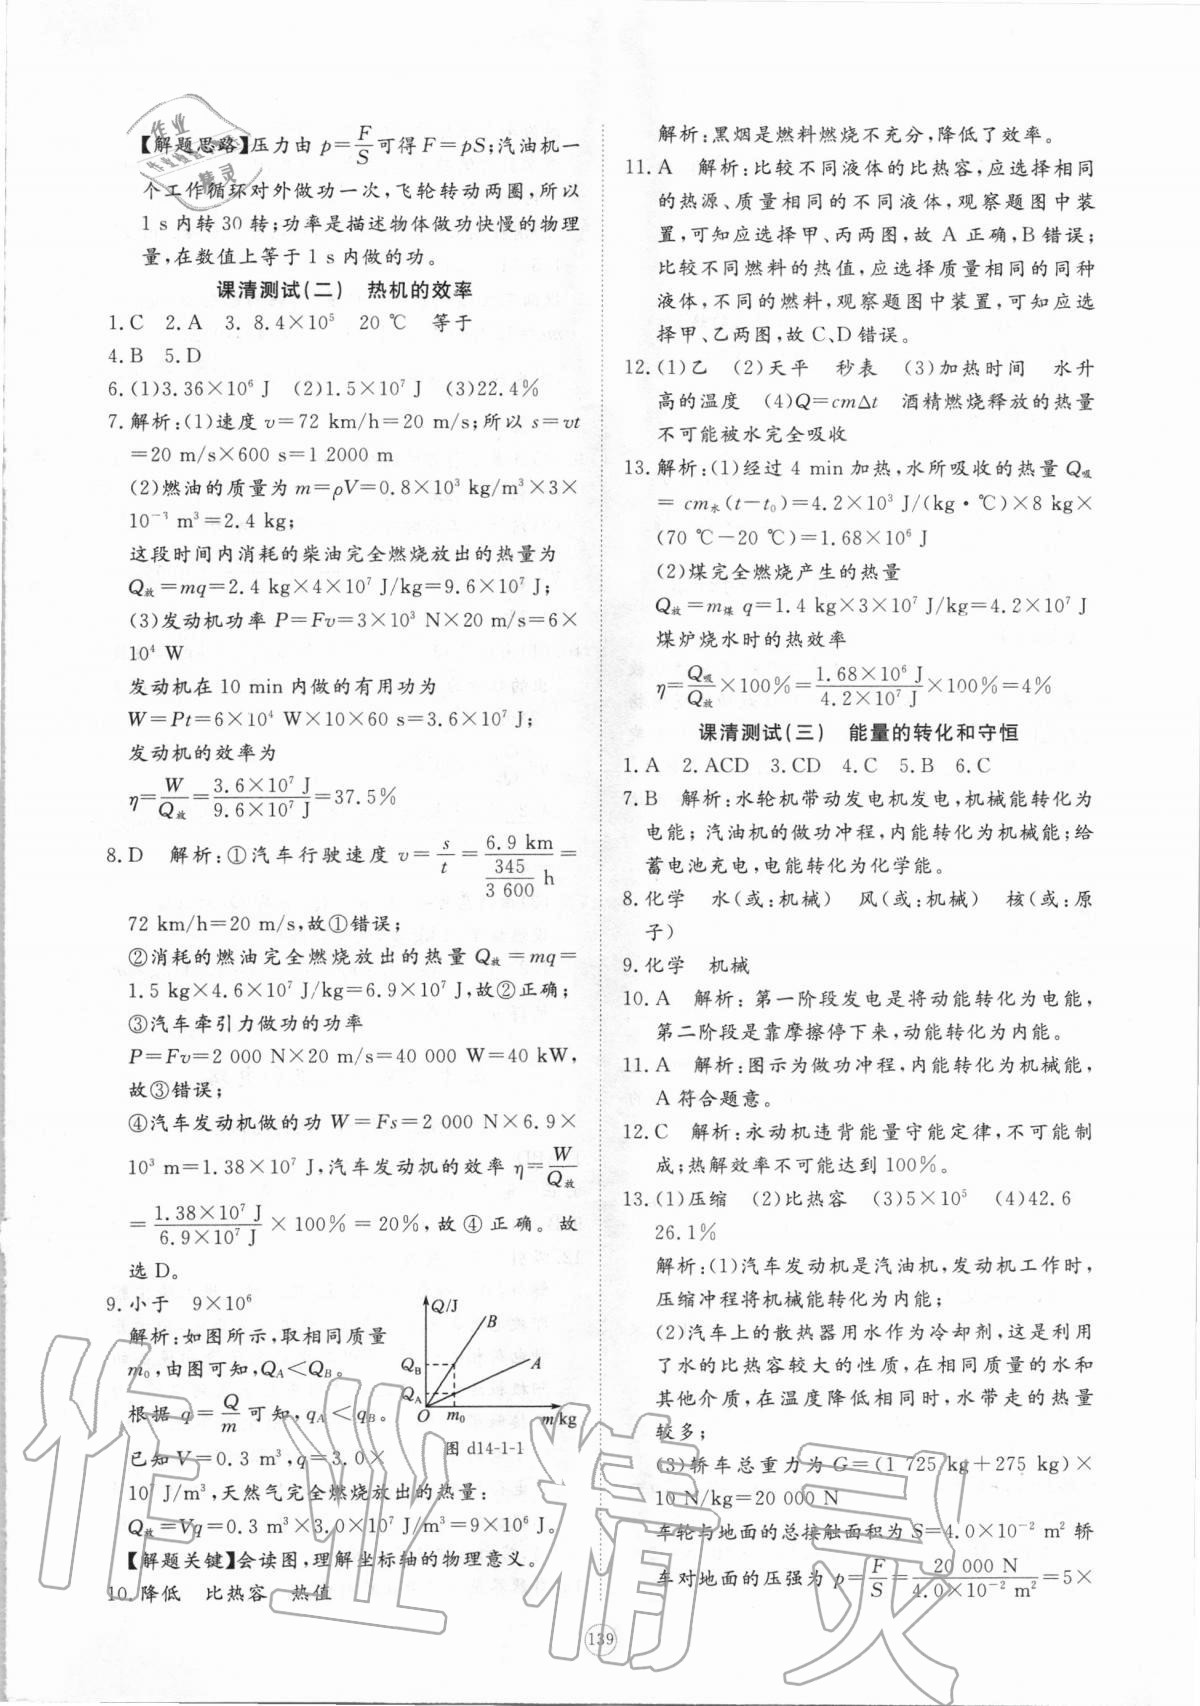 【解题思路】压力由 p=F/S 可得 F=pS;汽油机一
个工作循环对外做功一次,飞轮转动两圈,所以
1 s内转30转;功率是描述物体做功快慢的物理
量,在数值上等于1 s内做的功。
课清测试(二) 热机的效率
1. C 2. A 3. 8.4×10⁵ 20 ℃ 等于
4. B 5. D
6. (1)3.36×10⁶ J (2)1.5×10⁷ J (3)22.4%
7. 解析:(1)速度 v=72 km/h=20 m/s;所以 s=vt
=20 m/s×600 s=1 2000 m
(2)燃油的质量为 m=ρV=0.8×10³ kg/m³×3×
10⁻³ m³=2.4 kg;
这段时间内消耗的柴油完全燃烧放出的热量为
Q放=mq=2.4 kg×4×10⁷ J/kg=9.6×10⁷ J;
(3)发动机功率 P=Fv=3×10³ N×20 m/s=6×
10⁴ W
发动机在 10 min内做的有用功为
W=Pt=6×10⁴ W×10×60 s=3.6×10⁷ J;
发动机的效率为
η=W/Q放=3.6×10⁷ J/9.6×10⁷ J=37.5%
8. D 解析:①汽车行驶速度 v=s/t=6.9 km/(345/3 600 h)=
72 km/h=20 m/s,故①错误;
②消耗的燃油完全燃烧放出的热量 Q放=mq=
1.5 kg×4.6×10⁷ J/kg=6.9×10⁷ J,故②正确;
③汽车牵引力做功的功率
P=Fv=2 000 N×20 m/s=40 000 W=40 kW,
故③错误;
④汽车发动机做的功 W=Fs=2 000 N×6.9×
10³ m=1.38×10⁷ J,汽车发动机的效率 η=W/Q放
=1.38×10⁷ J/6.9×10⁷ J×100%=20%,故④正确。故
选 D。
9. 小于 9×10⁶
解析:如图所示,取相同质量
m₀,由图可知,Q_A<Q_B。
根据 q=Q/m 可知,q_A<q_B。
已知 V=0.3 m³,q=3.0×
10⁷ J/m³,天然气完全燃烧放出的热量:
Q放=Vq=0.3 m³×3.0×10⁷ J/m³=9×10⁶ J。
【解题关键】会读图,理解坐标轴的物理意义。
10. 降低 比热容 热值
Q/J
B
A
Q_B
Q_A
O m₀ m/kg
图 d14-1-1
解析:黑烟是燃料燃烧不充分,降低了效率。
11. A 解析:比较不同液体的比热容,应选择相同
的热源、质量相同的不同液体,观察题图中装
置,可知应选择甲、丙两图,故 A 正确,B 错误;
比较不同燃料的热值,应选择质量相同的同种
液体,不同的燃料,观察题图中装置,可知应选
择甲、乙两图,故 C、D 错误。
12. (1)乙 (2)天平 秒表 (3)加热时间 水升
高的温度 (4)Q=cmΔt 酒精燃烧释放的热量
不可能被水完全吸收
13. 解析:(1)经过 4 min 加热,水所吸收的热量 Q吸
=cm水(t-t₀)=4.2×10³ J/(kg·℃)×8 kg×
(70 ℃-20 ℃)=1.68×10⁶ J
(2)煤完全燃烧产生的热量
Q放=m煤 q=1.4 kg×3×10⁷ J/kg=4.2×10⁷ J
煤炉烧水时的热效率
η=Q吸/Q放×100%=1.68×10⁶ J/4.2×10⁷ J×100%=4%
课清测试(三) 能量的转化和守恒
1. A 2. ACD 3. CD 4. C 5. B 6. C
7. B 解析:水轮机带动发电机发电,机械能转化为
电能;汽油机的做功冲程,内能转化为机械能;给
蓄电池充电,电能转化为化学能。
8. 化学 水(或:机械) 风(或:机械) 核(或:原
子)
9. 化学 机械
10. A 解析:第一阶段发电是将动能转化为电能,
第二阶段是靠摩擦停下来,动能转化为内能。
11. A 解析:图示为做功冲程,内能转化为机械能,
A 符合题意。
12. C 解析:永动机违背能量守能定律,不可能制
成;热解效率不可能达到 100%。
13. (1)压缩 (2)比热容 (3)5×10⁵ (4)42.6
26.1%
解析:(1)汽车发动机是汽油机,发动机工作时,
压缩冲程将机械能转化为内能;
(2)汽车上的散热器用水作为冷却剂,这是利用
了水的比热容较大的性质,在相同质量的水和
其他介质,在温度降低相同时,水带走的热量
较多;
(3)轿车总重力为 G=(1 725 kg+275 kg)×
10 N/kg=20 000 N
车轮与地面的总接触面积为 S=4.0×10⁻² m² 轿
车对地面的压强为 p=F/S=20 000 N/4.0×10⁻² m²=5×
139
作业精灵